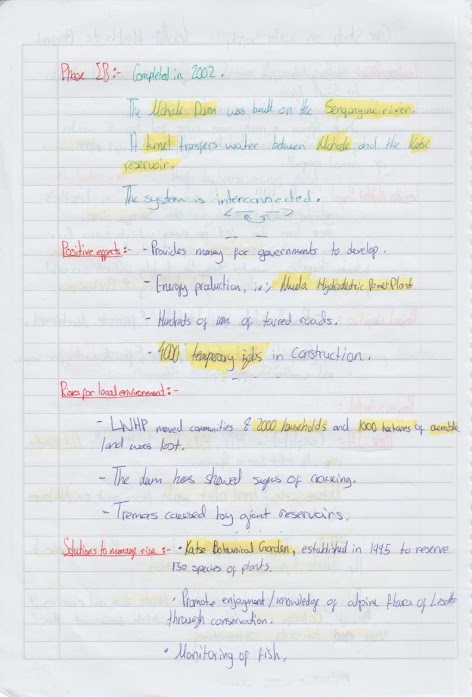 Phase IB:- Completed in 2002.
The Mohale Dam was built on the Senqunyane river.
A tunnel transfers water between Mohale and the Katse
reservoir.
The system is interconnected.
Positive effects:- - Provides money for governments to develop.
- Energy production, ie; Muela Hydroelectric Power Plant
- Hundrets of km of tarred roads.
- 4000 temporary jobs in construction.
Risks for local environment:-
- LWHP moved communities & 2000 households and 1000 hetares of aerable
land was lost.
- The dam has showed signs of cracking.
- Tremors caused by giant reservoirs.
Solutions to manage rise:- • Katse Botanical Garden, established in 1995 to reserve
150 species of plants.
• Promote enjoyment/knowledge of alpine flora of
through conservation.
• Monitoring of fish.